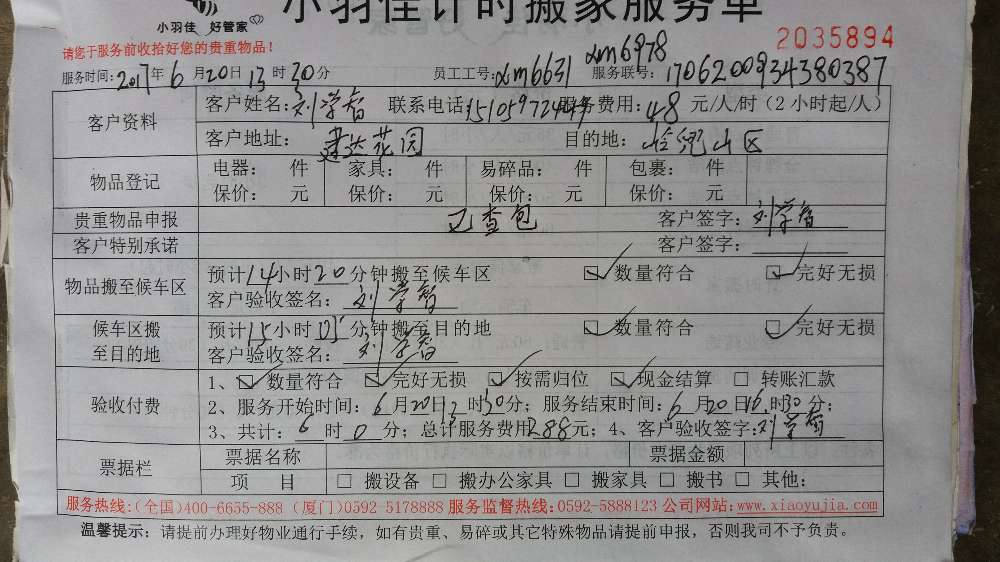 小羽佳计时搬家服务单
小羽佳 好管家
2035894
请您于服务前收拾好您的贵重物品！
服务时间：2017年6月20日13时30分 员工工号：xm6631 xm6978 服务联号：1706200934380387
客户资料
客户姓名：刘学智 联系电话：15105972449 服务费用：48元/人/时（2小时起/人）
客户地址：建达花园 目的地：山区
物品登记
电器： 件 家具： 件 易碎品： 件 包裹： 件
保价： 元 保价： 元 保价： 元 保价： 元
贵重物品申报 已查包 客户签字：刘学智
客户特别承诺 客户签字：
物品搬至候车区
预计14小时20分钟搬至候车区 数量符合 完好无损
客户验收签名：刘学智
候车区搬至目的地
预计15小时05分钟搬至目的地 数量符合 完好无损
客户验收签名：刘学智
验收付费
1、数量符合 完好无损 按需归位 现金结算 转账汇款
2、服务开始时间：6月20日13时30分；服务结束时间：6月20日16时30分；
3、共计：6时0分；总计服务费用288元；4、客户验收签字：刘学智
票据栏
票据名称 票据金额
项 目 搬设备 搬办公家具 搬家具 搬书 其他：
服务热线：（全国）400-6655-888（厦门）0592-5178888 服务监督热线：0592-5888123 公司网站：www.xiaoyujia.com
温馨提示：请提前办理好物业通行手续，如有贵重、易碎或其它特殊物品请提前申报，否则我司不予负责。